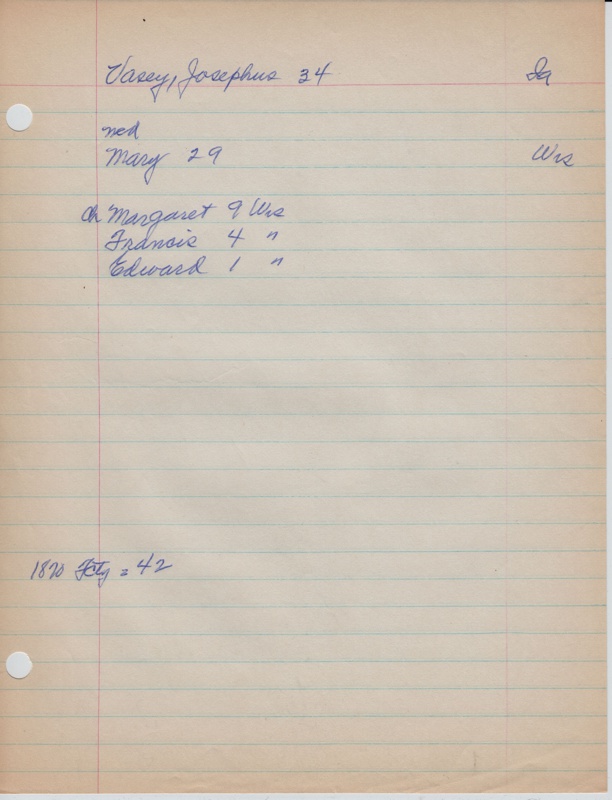 Vasey, Josephus 34 Ia
med
Mary 29 Wis
ch Margaret 9 Wis
Francis 4 "
Edward 1 "
1870 = 42